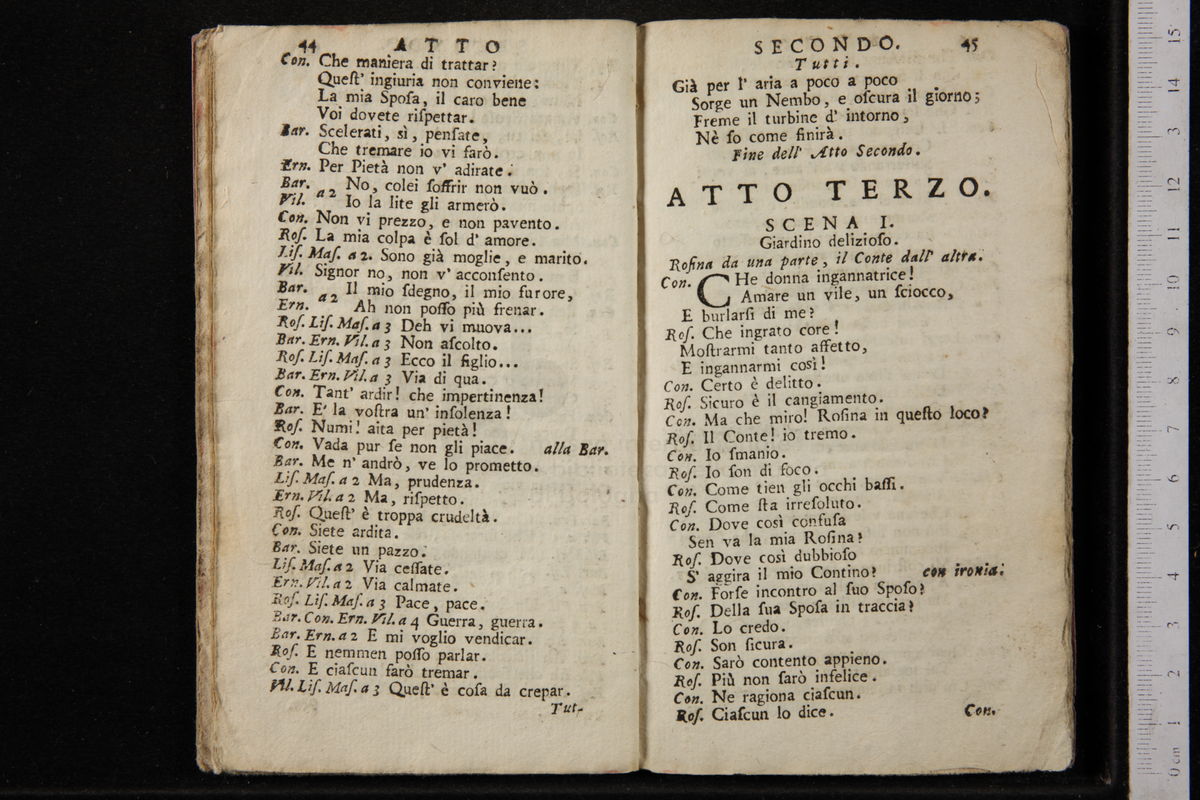 44 ATTO
Con. Che maniera di trattar?
Queſt' ingiuria non conviene:
La mia Spoſa, il caro bene
Voi dovete riſpettar.
Bar. Scelerati, sì, penſate,
Che tremare io vi farò.
Ern. Per Pietà non v' adirate.
Bar. a 2 No, colei ſoffrir non vuò.
Vil. Io la lite gli armerò.
Con. Non vi prezzo, e non pavento.
Roſ. La mia colpa è ſol d' amore.
Liſ. Maſ. a 2. Sono già moglie, e marito.
Vil. Signor no, non v' acconſento.
Bar. a 2 Il mio ſdegno, il mio furore,
Ern. Ah non poſſo più frenar.
Roſ. Liſ. Maſ. a 3 Deh vi muova...
Bar. Ern. Vil. a 3 Non aſcolto.
Roſ. Liſ. Maſ. a 3 Ecco il figlio...
Bar. Ern. Vil. a 3 Via di qua.
Con. Tant' ardir! che impertinenza!
Bar. E' la voſtra un' inſolenza!
Roſ. Numi! aita per pietà!
Con. Vada pur ſe non gli piace. alla Bar.
Bar. Me n' andrò, ve lo prometto.
Liſ. Maſ. a 2 Ma, prudenza.
Ern. Vil. a 2 Ma, riſpetto.
Roſ. Queſt' è troppa crudeltà.
Con. Siete ardita.
Bar. Siete un pazzo.
Liſ. Maſ. a 2 Via ceſſate.
Ern. Vil. a 2 Via calmate.
Roſ. Liſ. Maſ. a 3 Pace, pace.
Bar. Con. Ern. Vil. a 4 Guerra, guerra.
Bar. Ern. a 2 E mi voglio vendicar.
Roſ. E nemmen poſſo parlar.
Con. E ciaſcun farò tremar.
Vil. Liſ. Maſ. a 3 Queſt' è coſa da crepar.
Tut-
SECONDO. 45
Tutti.
Già per l' aria a poco a poco
Sorge un Nembo, e oſcura il giorno;
Freme il turbine d' intorno,
Nè ſo come finirà.
Fine dell' Atto Secondo.
ATTO TERZO.
SCENA I.
Giardino delizioſo.
Roſina da una parte, il Conte dall' altra.
Con. CHe donna ingannatrice!
Amare un vile, un ſciocco,
E burlarſi di me?
Roſ. Che ingrato core!
Moſtrarmi tanto affetto,
E ingannarmi così!
Con. Certo è delitto.
Roſ. Sicuro è il cangiamento.
Con. Ma che miro! Roſina in queſto loco?
Roſ. Il Conte! io tremo.
Con. Io ſmanio.
Roſ. Io ſon di foco.
Con. Come tien gli occhi baſſi.
Roſ. Come ſta irreſoluto.
Con. Dove così confuſa
Sen va la mia Roſina?
Roſ. Dove così dubbioſo
S' aggira il mio Contino? con ironia.
Con. Forſe incontro al ſuo Spoſo?
Roſ. Della ſua Spoſa in traccia?
Con. Lo credo.
Roſ. Son ſicura.
Con. Sarò contento appieno.
Roſ. Più non ſarò infelice.
Con. Ne ragiona ciaſcun.
Roſ. Ciaſcun lo dice. Con.
0 cm 1 2 3 4 5 6 7 8 9 10 11 12 3 14 15